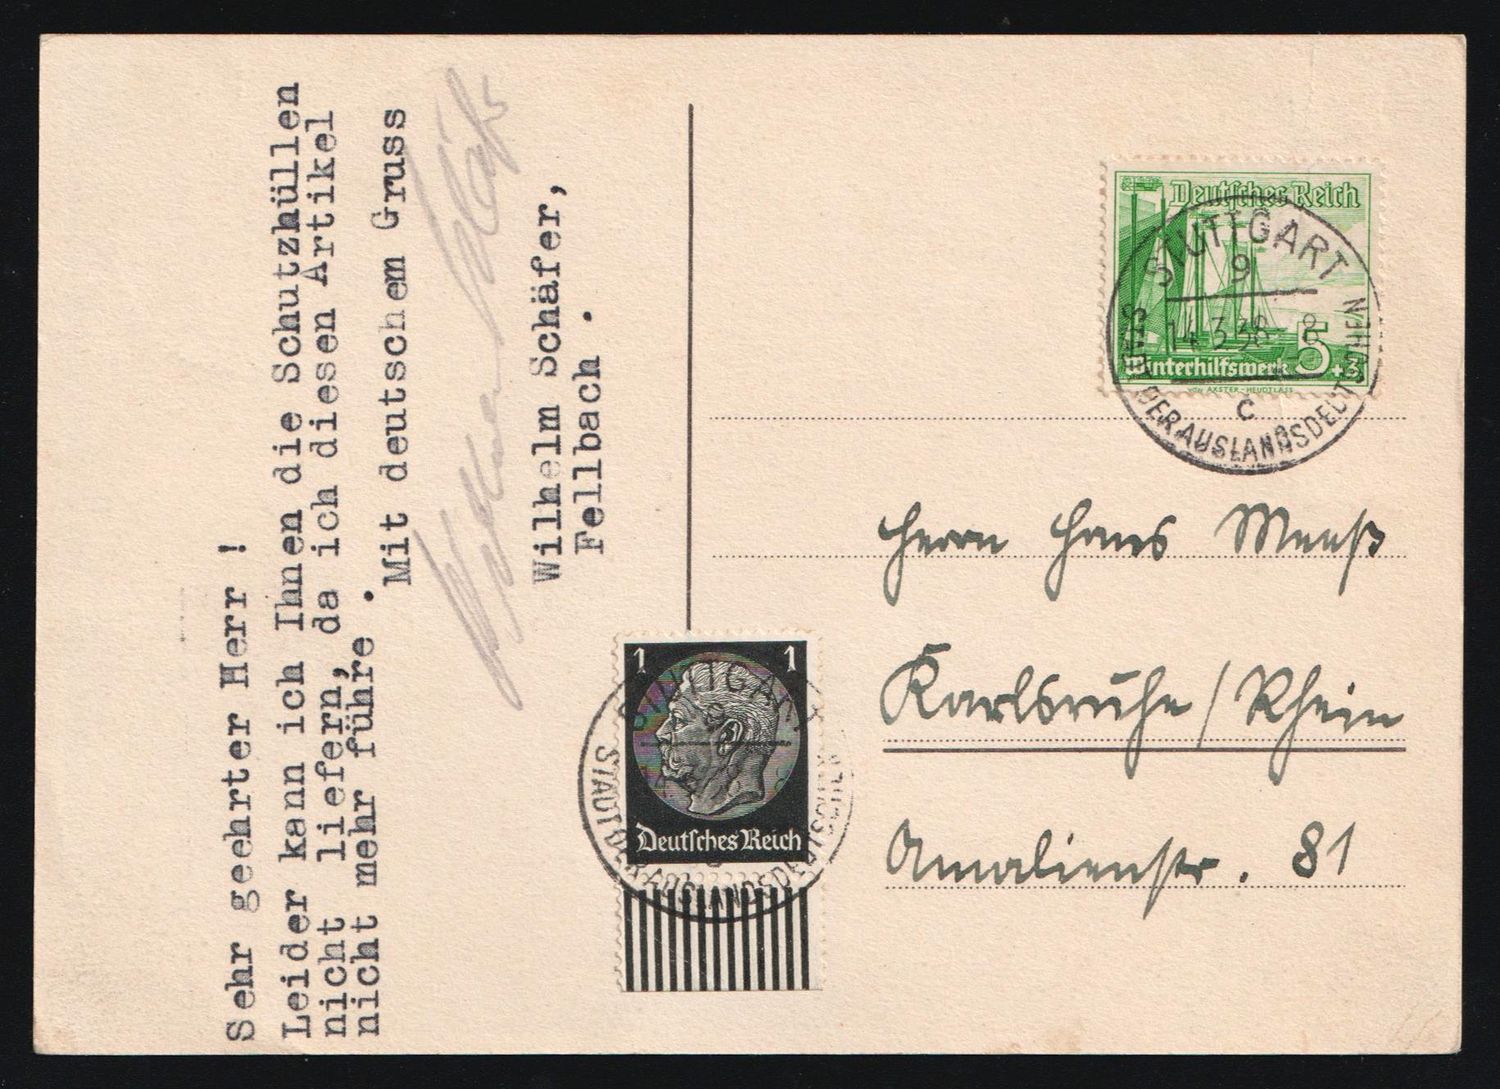 Sehr geehrter Herr !
Leider kann ich Ihnen die Schutzhüllen
nicht liefern, da ich diesen Artikel
nicht mehr führe .
Mit deutschem Gruss
Wilhelm Schäfer,
Fellbach .
Deutsches Reich
Winterhilfswerk 5+3
AXSTER-HEUDTLASS
STUTTGART
9
14.3.38 8
c
STADT DER AUSLANDSDEUTSCHEN
Herrn Hans
Karlsruhe/Rhein
Amalienstr. 81
1 1
Deutsches Reich
STUTTGART
STADT DER AUSLANDSDEUTSCHEN